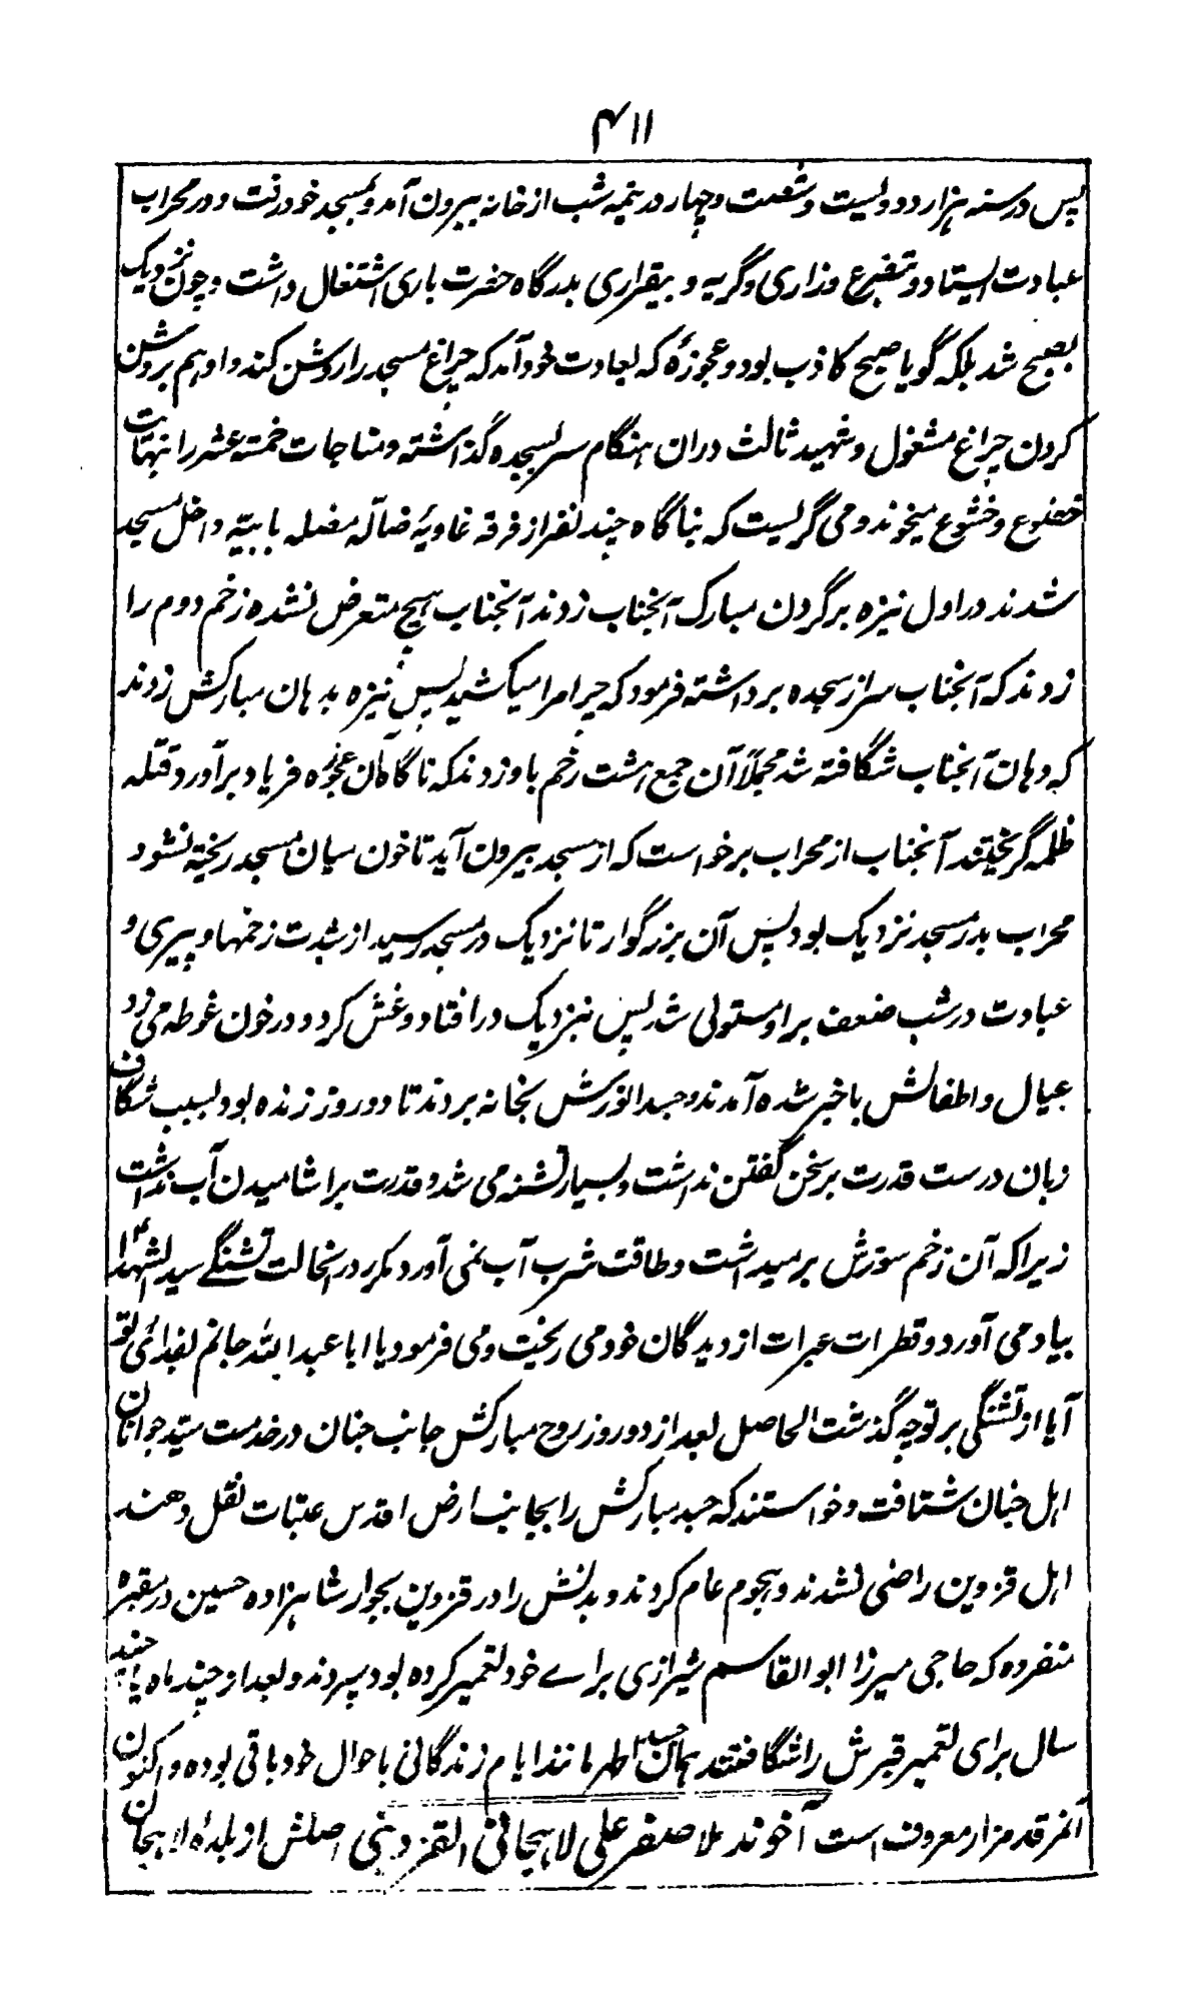 ۴۱۱
پس در سنه هزار و دویست و شصت و چهار در نیمه شب از خانه بیرون آمد و بمسجد خود رفت و در محراب
عبادت ایستاد و تضرع و زاری و گریه و بیقراری بدرگاه حضرت باری اشتغال داشت و چون نزدیک
بصبح شد بلکه گویا صبح کاذب بود و عجوزهٔ که بعادت خود آمد که چراغ مسجد را روشن کند و او هم بروشن
کردن چراغ مشغول و شهید ثالث دران هنگام سر بسجده گذاشته و مناجات خمسة عشر را بنهایت
خضوع و خشوع میخوند و می گریست که بناگاه چند نفر از فرقه غاویهٔ ضالّه مضله بابیّه داخل مسجد
شدند در اول نیزه بر گردن مبارک آنجناب زدند آنجناب هیچ متعرض نشده زخم دوم را
زدند که آنجناب سر از سجده برداشته فرمود که چرا مرا میکشید پس نیزه بدهان مبارکش زدند
که دهان آنجناب شگافته شد مجملاً آن جمع هشت زخم باو زدند که ناگاهان عجوزه فریاد برآورد قتله
ظلمه گریختند آنجناب از محراب برخواست که از مسجد بیرون آید تا خون میان مسجد ریخته نشود
محراب بدر مسجد نزدیک بود پس آن بزرگوار تا نزدیک در مسجد رسید از شدت زخمها و پیری و
عبادت در شب ضعف بر او مستولی شد پس نزدیک در افتاد و غش کرد و در خون غوطه می زد
عیال و اطفالش با خبر شده آمدند و جسد انورش بخانه بردند تا دو روز زنده بود و بسبب شگاف
زبان درست قدرت بر سخن گفتن نداشت و بسیار تشنه می شد و قدرت بر اشامیدن آب نداشت
زیرا که آن زخم سوزش بر میداشت و طاقت شرب آب نمی آورد مکرر در انحالت تشنگے سید الشهدا؏
بیاد می آورد و قطرات عبرات از دیدگان خود می ریخت و می فرمود یا ابا عبد الله جانم بفدائی تو
آیا از تشنگی بر تو چه گذشت الحاصل بعد از دو روز روح مبارکش جانب جنان در خدمت سیّد جوانان
اهل جنان شتافت و خواستند که جسد مبارکش را بجانب ارض اقدس عتبات نقل دهند
اهل قزوین راضی نشدند و هجوم عام کردند و بدنش را در قزوین بجوار شاهزاده حسین در مقبره
منفرده که حاجی میرزا ابو القاسم شیرازی براے خود تعمیر کرده بود سپردند و بعد از چند ماه یا چند
سال برای تعمیر قبرش را شگافتند همان جسد اطهر مانند ایام زندگانی باحوال خود باقی بوده و اکنون
آنمرقد مزار معروف است آخوند ملا صفر علی لاهیجانی القزوینی اصلش از بلدهٔ لاهیجان